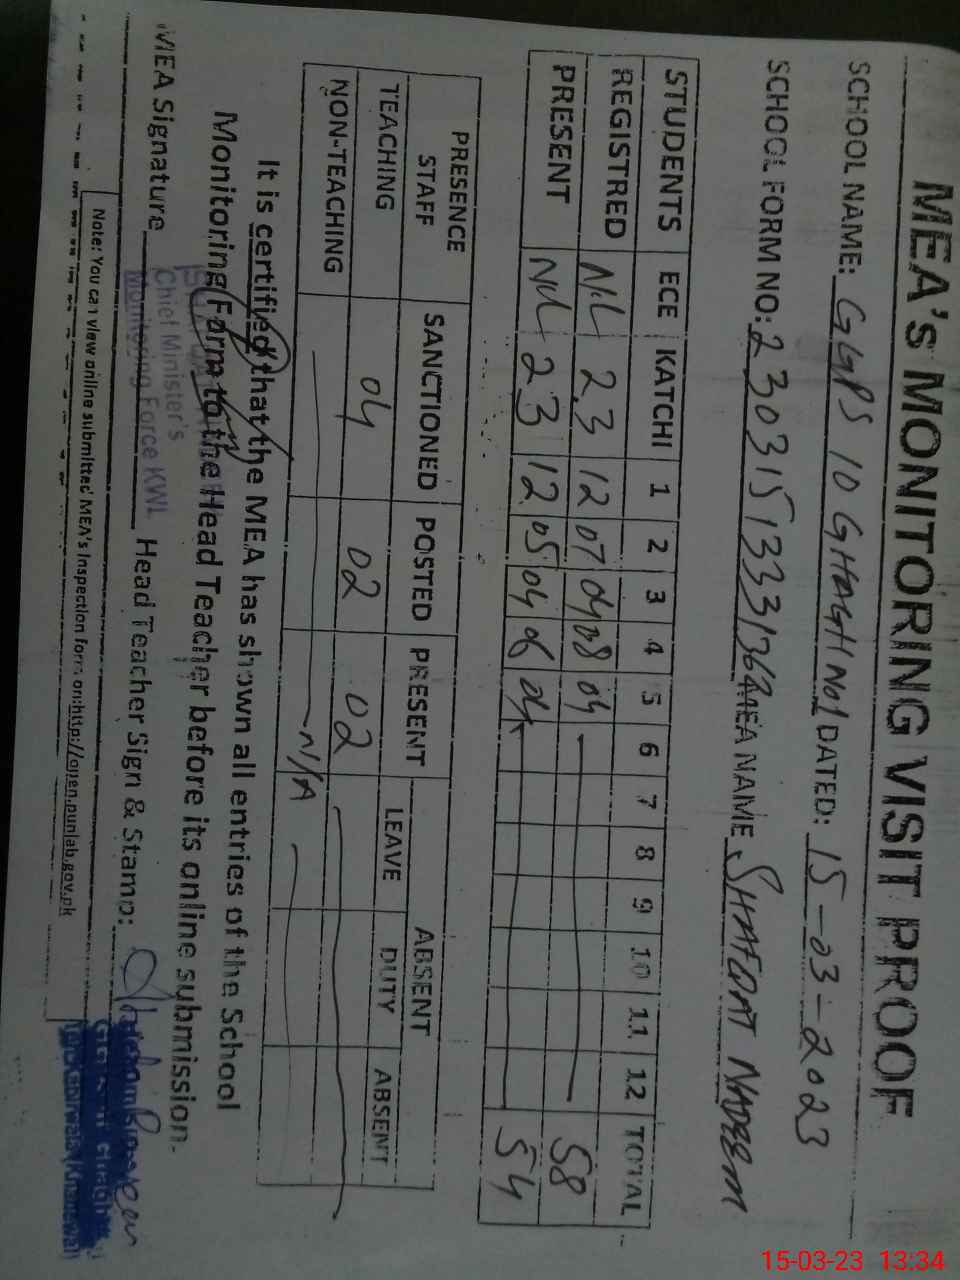 MEA's MONITORING VISIT PROOF
SCHOOL NAME: GGPS 10 GHAGH No1 DATED: 15-03-2023
SCHOOL FORM NO: MEA NAME SHAFQAT NADEEM
STUDENTS ECE KATCHI 1 2 3 4 5 6 7 8 9 10 11 12 TOTAL
REGISTRED NIL 23 12 07 04 08 04 58
PRESENT NIL 23 12 05 04 06 04 54
PRESENCE STAFF SANCTIONED POSTED PRESENT ABSENT
LEAVE DUTY ABSENT
TEACHING 04 02 02
NON-TEACHING N/A
It is certified that the MEA has shown all entries of the School
Monitoring Form to the Head Teacher before its online submission.
Chief Minister's
Monitoring Force KWL
MEA Signature Head Teacher Sign & Stamp:
Note: You can view online submitted MEA's Inspection form on:http://open.punjab.gov.pk
15-03-23 13:34